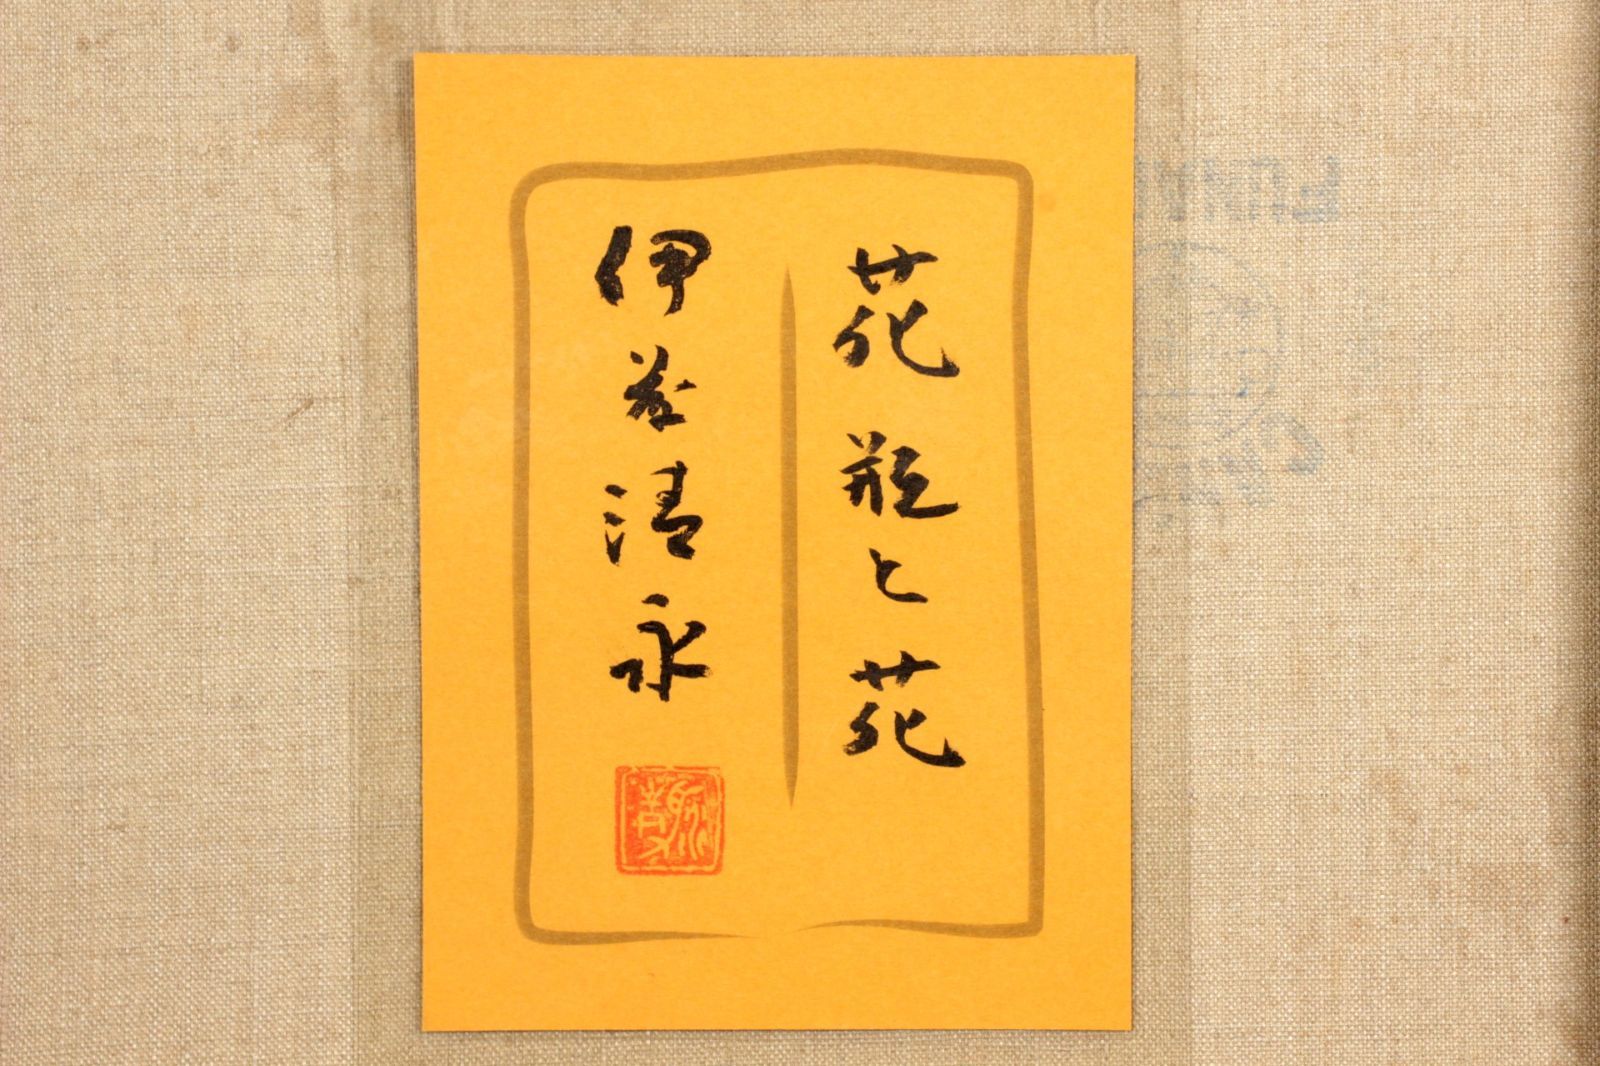 花瓶と花
伊藤清永